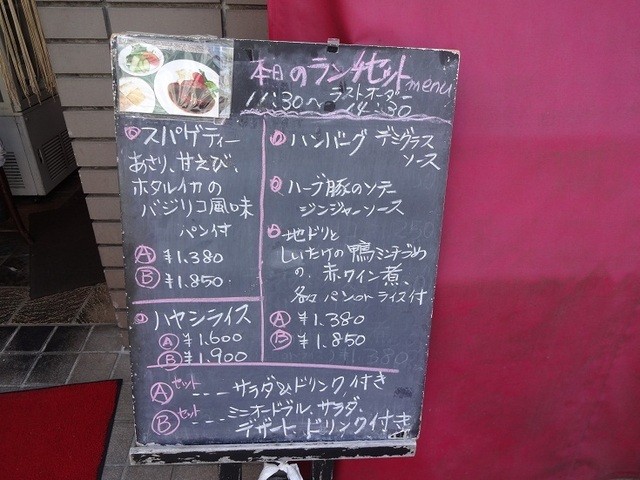 本日のランチセット menu
11:30〜 ラストオーダー 14:30
スパゲティー
あさり、甘えび、
ホタルイカの
バジリコ風味
パン付
Ⓐ ¥1.380
Ⓑ ¥1.850
ハヤシライス
Ⓐ ¥1.600
Ⓑ ¥1.900
ハンバーグ デミグラス
ソース
ハーブ豚のソテー
ジンジャーソース
地ドリと
しいたけの鴨ミンチづめ
の、赤ワイン煮、
各々 パンorライス付
Ⓐ ¥1.380
Ⓑ ¥1.850
Ⓐセット --- サラダ&ドリンク付き
Ⓑセット --- ミニオードブル、サラダ、
デザート、ドリンク付き